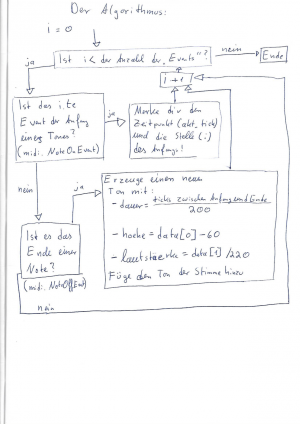 Der Algorithmus:
i = 0
Ist i < der Anzahl der "Events"?
nein
Ende
ja
i + 1
Ist das i.te
Event der Anfang
eines Tones?
(midi.NoteOnEvent)
ja
Merke dir den
Zeitpunkt (akt_tick)
und die Stelle (i)
des Anfangs!
nein
ja
Erzeuge einen neuen
Ton mit:
- dauer = ticks zwischen Anfang und Ende
200
- hoehe = data[0] - 60
- lautstaerke = data[1] / 220
Füge den Ton der Stimme hinzu
Ist es das
Ende einer
Note?
(midi.NoteOffEvent)
nein